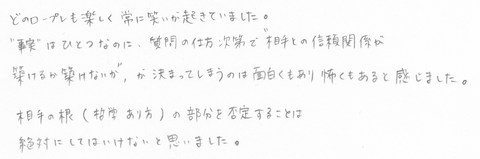 どのロープレも楽しく常に笑いが起きていました。
"事実"はひとつなのに、質問の仕方次第で相手との信頼関係が
築けるか築けないが、が決まってしまうのは面白くもあり怖くもあると感じました。
相手の根(哲学 あり方)の部分を否定することは
絶対にしてはいけないと思いました。